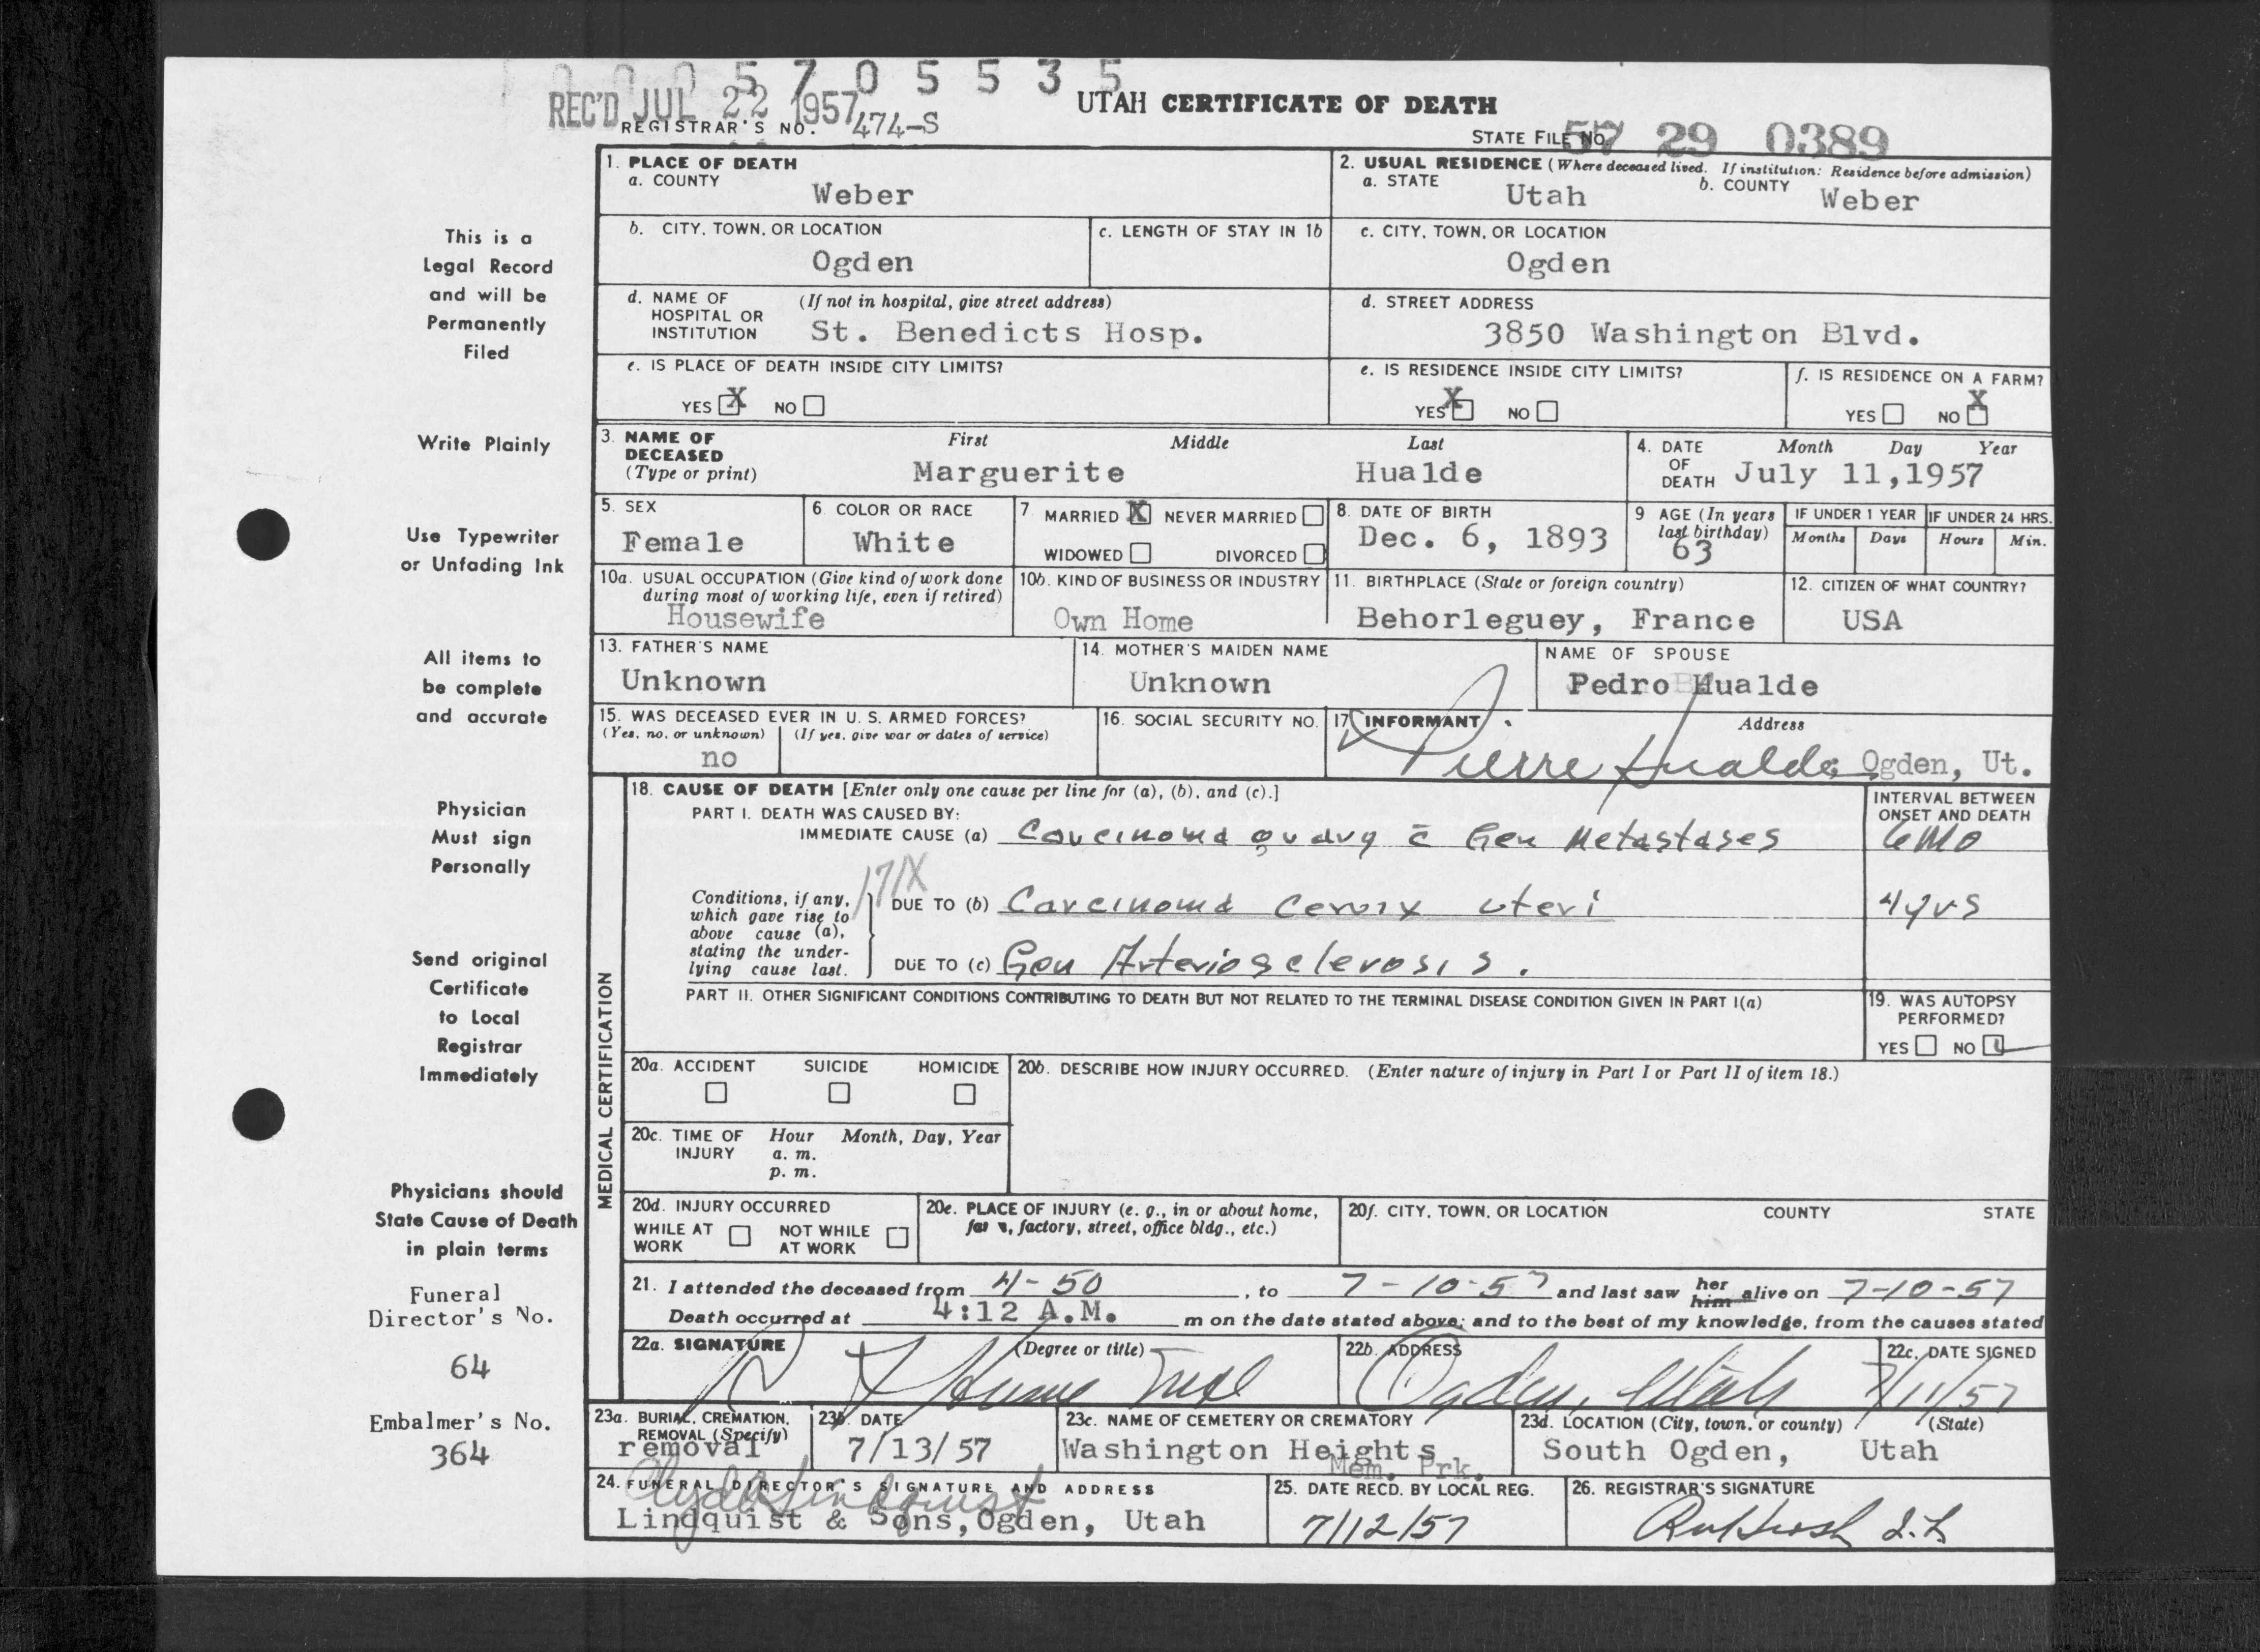 0 0 0 5 7 0 5 5 3 5
REC'D JUL 22 1957
REGISTRAR'S NO. 474-S
UTAH CERTIFICATE OF DEATH
STATE FILE NO. 57 29 0389
1. PLACE OF DEATH
a. COUNTY
Weber
2. USUAL RESIDENCE (Where deceased lived. If institution: Residence before admission)
a. STATE Utah b. COUNTY Weber
b. CITY, TOWN, OR LOCATION
Ogden
c. LENGTH OF STAY IN 1b
c. CITY, TOWN, OR LOCATION
Ogden
d. NAME OF HOSPITAL OR INSTITUTION (If not in hospital, give street address)
St. Benedicts Hosp.
d. STREET ADDRESS
3850 Washington Blvd.
e. IS PLACE OF DEATH INSIDE CITY LIMITS?
YES X NO
e. IS RESIDENCE INSIDE CITY LIMITS?
YES X NO
f. IS RESIDENCE ON A FARM?
YES NO X
3. NAME OF DECEASED (Type or print)
First Middle Last
Marguerite Hualde
4. DATE OF DEATH Month Day Year
July 11,1957
5. SEX
Female
6. COLOR OR RACE
White
7. MARRIED X NEVER MARRIED
WIDOWED DIVORCED
8. DATE OF BIRTH
Dec. 6, 1893
9 AGE (In years last birthday)
63
IF UNDER 1 YEAR IF UNDER 24 HRS.
Months Days Hours Min.
10a. USUAL OCCUPATION (Give kind of work done during most of working life, even if retired)
Housewife
10b. KIND OF BUSINESS OR INDUSTRY
Own Home
11. BIRTHPLACE (State or foreign country)
Behorleguey, France
12. CITIZEN OF WHAT COUNTRY?
USA
13. FATHER'S NAME
Unknown
14. MOTHER'S MAIDEN NAME
Unknown
NAME OF SPOUSE
Pedro Hualde
15. WAS DECEASED EVER IN U. S. ARMED FORCES?
(Yes, no, or unknown) (If yes, give war or dates of service)
no
16. SOCIAL SECURITY NO.
17. INFORMANT Address
Pierre Hualde Ogden, Ut.
18. CAUSE OF DEATH [Enter only one cause per line for (a), (b), and (c).]
INTERVAL BETWEEN ONSET AND DEATH
PART I. DEATH WAS CAUSED BY:
IMMEDIATE CAUSE (a) Carcinoma ovary c̄ Gen Metastases 6 Mo
171X
Conditions, if any, which gave rise to above cause (a), stating the underlying cause last.
DUE TO (b) Carcinoma Cervix uteri 4 yrs
DUE TO (c) Gen Arteriosclerosis.
PART II. OTHER SIGNIFICANT CONDITIONS CONTRIBUTING TO DEATH BUT NOT RELATED TO THE TERMINAL DISEASE CONDITION GIVEN IN PART I(a)
19. WAS AUTOPSY PERFORMED?
YES NO
MEDICAL CERTIFICATION
20a. ACCIDENT SUICIDE HOMICIDE
20b. DESCRIBE HOW INJURY OCCURRED. (Enter nature of injury in Part I or Part II of item 18.)
20c. TIME OF INJURY Hour Month, Day, Year
a. m.
p. m.
20d. INJURY OCCURRED
WHILE AT WORK NOT WHILE AT WORK
20e. PLACE OF INJURY (e. g., in or about home, farm, factory, street, office bldg., etc.)
20f. CITY, TOWN, OR LOCATION COUNTY STATE
21. I attended the deceased from 4-50, to 7-10-57 and last saw her him alive on 7-10-57
Death occurred at 4:12 A.M. m on the date stated above; and to the best of my knowledge, from the causes stated
22a. SIGNATURE (Degree or title)
22b. ADDRESS
Ogden, Utah
22c. DATE SIGNED
7/11/57
23a. BURIAL, CREMATION, REMOVAL (Specify)
removal
23b. DATE
7/13/57
23c. NAME OF CEMETERY OR CREMATORY
Washington Heights
Mem. Prk.
23d. LOCATION (City, town, or county) (State)
South Ogden, Utah
24. FUNERAL DIRECTOR'S SIGNATURE AND ADDRESS
Clyde Lindquist
Lindquist & Sons, Ogden, Utah
25. DATE RECD. BY LOCAL REG.
7/12/57
26. REGISTRAR'S SIGNATURE
This is a
Legal Record
and will be
Permanently
Filed
Write Plainly
Use Typewriter
or Unfading Ink
All items to
be complete
and accurate
Physician
Must sign
Personally
Send original
Certificate
to Local
Registrar
Immediately
Physicians should
State Cause of Death
in plain terms
Funeral
Director's No.
64
Embalmer's No.
364